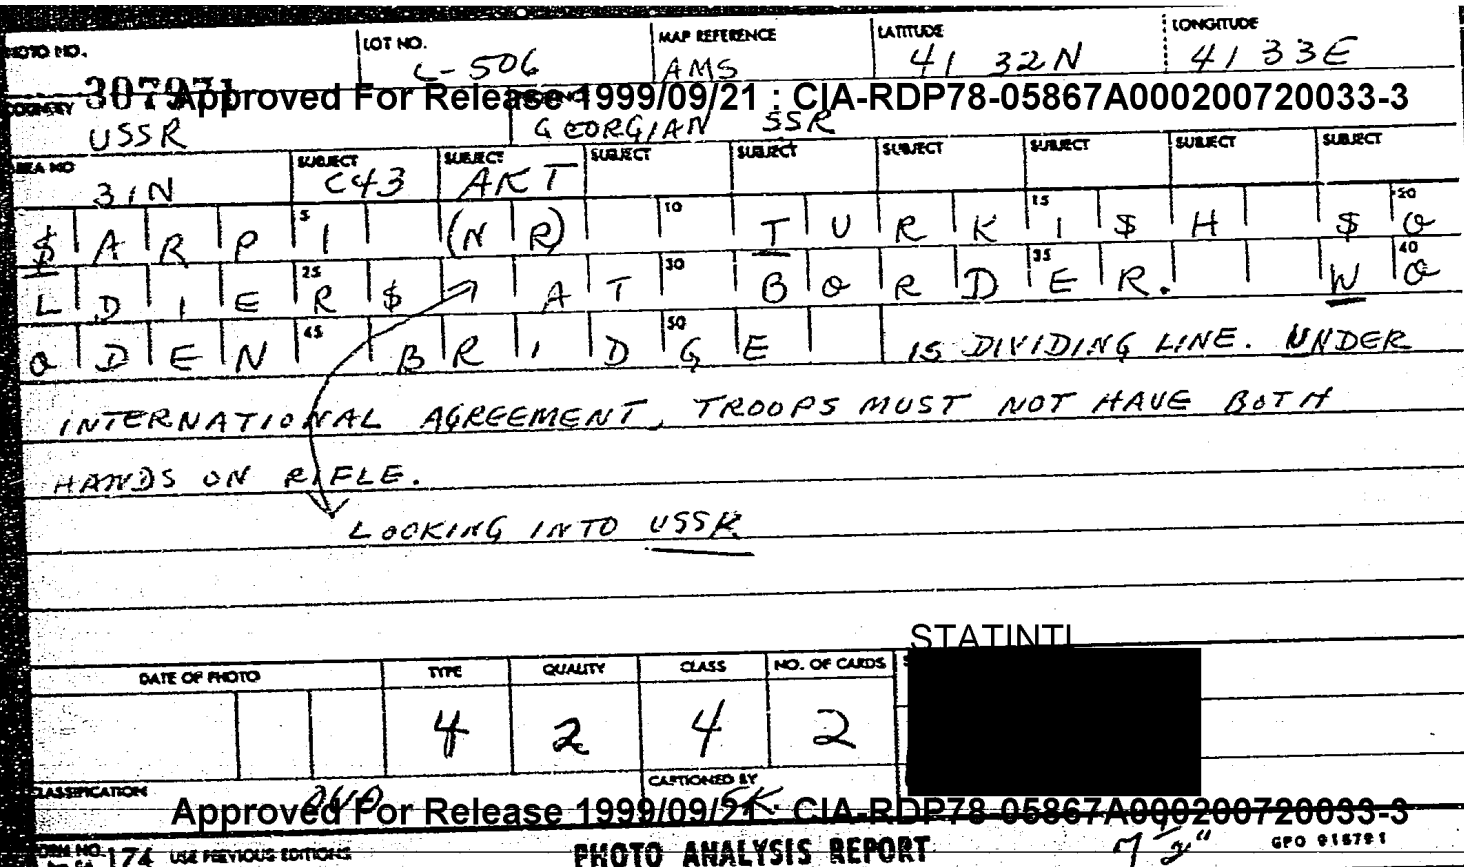 PHOTO NO. LOT NO. MAP REFERENCE LATITUDE LONGITUDE
307971 L-506 AMS 41 32N 41 33E
Approved For Release 1999/09/21 : CIA-RDP78-05867A000200720033-3
COUNTRY
USSR GEORGIAN SSR
AREA NO SUBJECT SUBJECT SUBJECT SUBJECT SUBJECT SUBJECT SUBJECT SUBJECT
31N C43 AKT
5 10 15 20
$ARPI (NR) TURKI$H $O
25 30 35 40
LDIER$ AT BORDER. WO
45 50
ODEN BRIDGE IS DIVIDING LINE. UNDER
INTERNATIONAL AGREEMENT, TROOPS MUST NOT HAVE BOTH
HANDS ON RIFLE.
LOOKING INTO USSR
STATINTL
DATE OF PHOTO TYPE QUALITY CLASS NO. OF CARDS
4 2 4 2
CLASSIFICATION CAPTIONED BY
SK.
Approved For Release 1999/09/21 : CIA-RDP78-05867A000200720033-3
FORM NO. 174 USE PREVIOUS EDITIONS PHOTO ANALYSIS REPORT 7½" GPO 915791